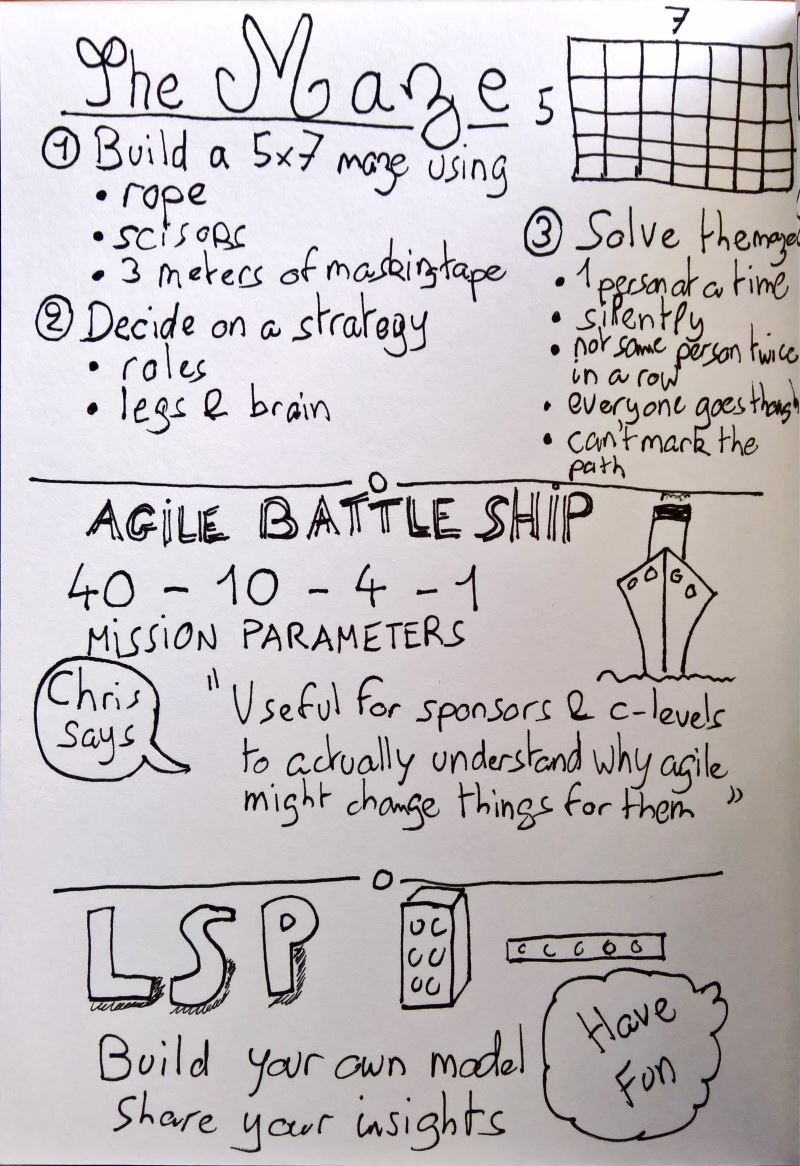 The Maze
7
5
① Build a 5x7 maze using
• rope
• scisors
• 3 meters of masking tape
② Decide on a strategy
• roles
• legs & brain
③ Solve the maze
• 1 person at a time
• silently
• not same person twice
in a row
• everyone goes though
• can't mark the
path
AGiLE BATTLESHiP
40 - 10 - 4 - 1
MiSSION PARAMETERS
Chris
says
"Useful for sponsors & c-levels
to actually understand why agile
might change things for them"
LSP
Build your own model
Share your insights
Have
Fun